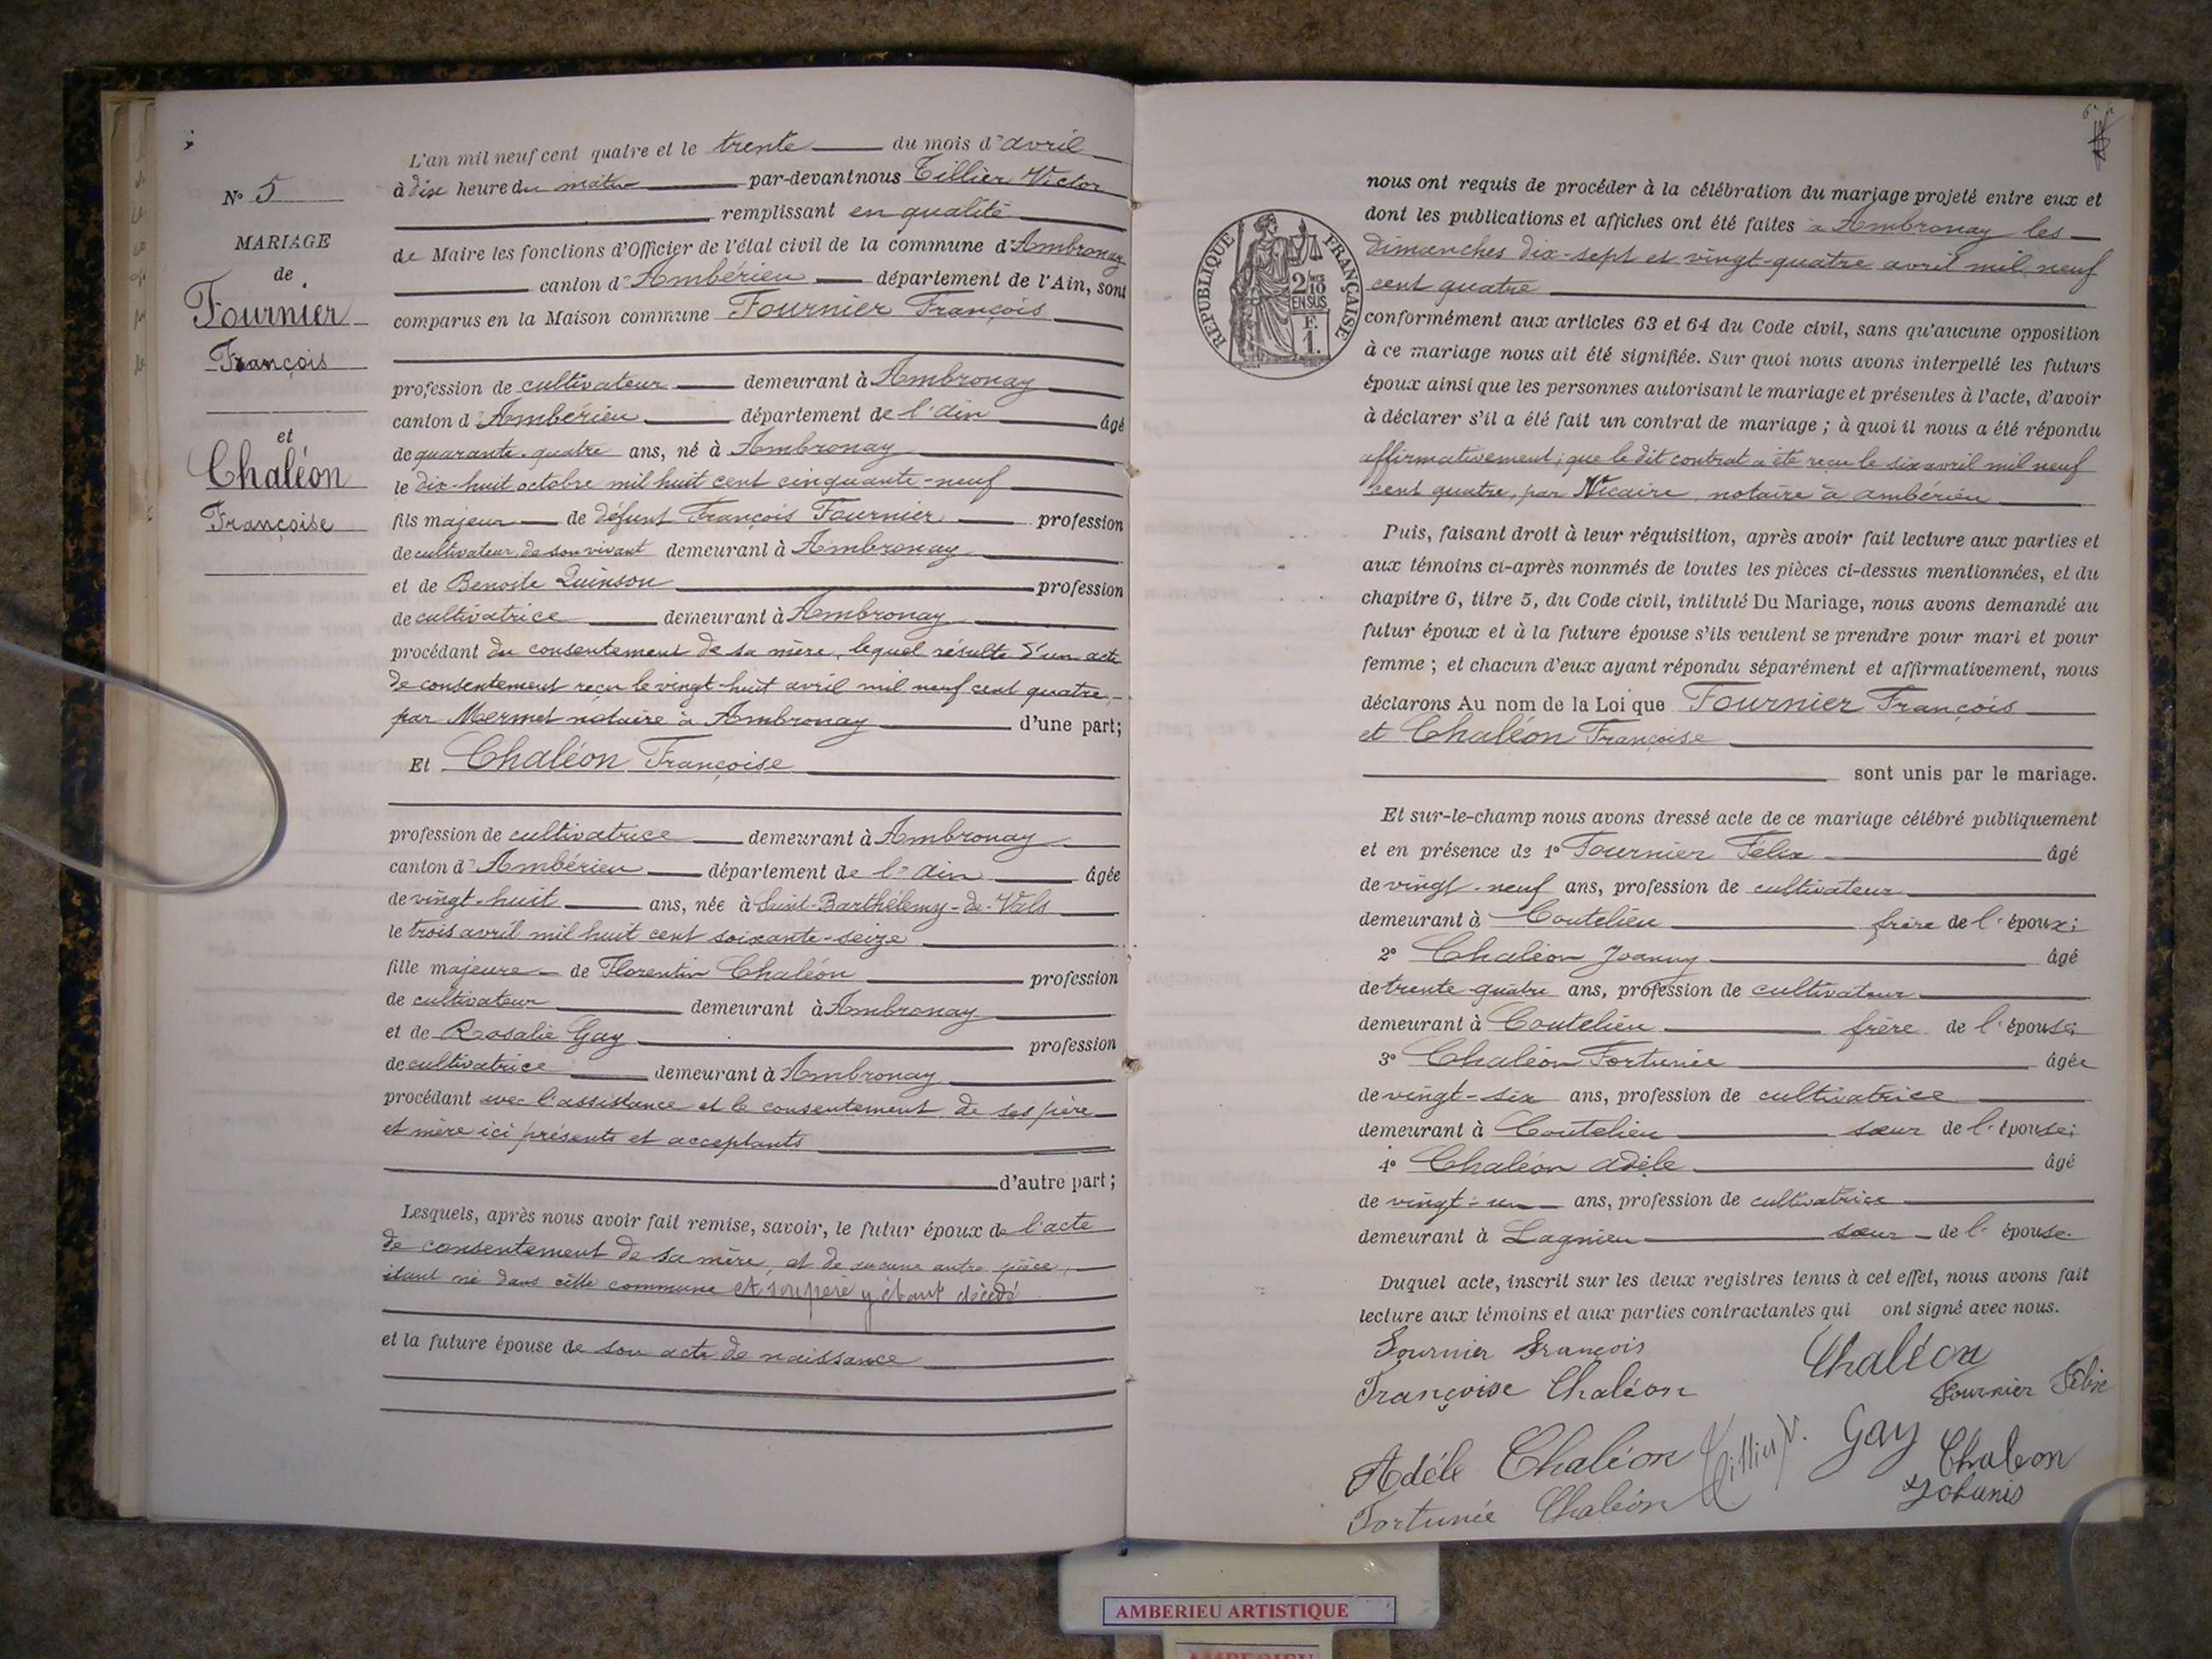 L'an mil neuf cent quatre et le trente du mois d'avril
N° 5
à dix heure du matin par-devant nous Tillier Victor
remplissant en qualité
MARIAGE
de Maire les fonctions d'Officier de l'état civil de la commune d'Ambronay
de
canton d'Ambérieu département de l'Ain, sont
Fournier
comparus en la Maison commune Fournier François
François
profession de cultivateur demeurant à Ambronay
canton d'Ambérieu département de l'Ain âgé
et
de quarante-quatre ans, né à Ambronay
Chaléon
le dix-huit octobre mil huit cent cinquante-neuf
Françoise
fils majeur de défunt François Fournier profession
de cultivateur de son vivant demeurant à Ambronay
et de Benoite Quinson profession
de cultivatrice demeurant à Ambronay
procédant du consentement de sa mère, lequel résulte d'un acte
de consentement reçu le vingt-huit avril mil neuf cent quatre,
par Mermet notaire à Ambronay d'une part;
Et Chaléon Françoise
profession de cultivatrice demeurant à Ambronay
canton d'Ambérieu département de l'Ain âgée
de vingt-huit ans, née à Saint-Barthélemy-de-Vals
le trois avril mil huit cent soixante-seize
fille majeure de Florentin Chaléon profession
de cultivateur demeurant à Ambronay
et de Rosalie Gay profession
de cultivatrice demeurant à Ambronay
procédant avec l'assistance et le consentement de ses père
et mère ici présents et acceptants
d'autre part;
Lesquels, après nous avoir fait remise, savoir, le futur époux de l'acte
de consentement de sa mère, et de aucune autre pièce,
étant né dans cette commune et son père y étant décédé
et la future épouse de son acte de naissance
nous ont requis de procéder à la célébration du mariage projeté entre eux et
dont les publications et affiches ont été faites à Ambronay les
dimanches dix-sept et vingt-quatre avril mil neuf
cent quatre
RÉPUBLIQUE FRANÇAISE
2/10 EN SUS
F. 1.
conformément aux articles 63 et 64 du Code civil, sans qu'aucune opposition
à ce mariage nous ait été signifiée. Sur quoi nous avons interpellé les futurs
époux ainsi que les personnes autorisant le mariage et présentes à l'acte, d'avoir
à déclarer s'il a été fait un contrat de mariage; à quoi il nous a été répondu
affirmativement; que le dit contrat a été reçu le six avril mil neuf
cent quatre, par Nicaire, notaire à Ambérieu
Puis, faisant droit à leur réquisition, après avoir fait lecture aux parties et
aux témoins ci-après nommés de toutes les pièces ci-dessus mentionnées, et du
chapitre 6, titre 5, du Code civil, intitulé Du Mariage, nous avons demandé au
futur époux et à la future épouse s'ils veulent se prendre pour mari et pour
femme; et chacun d'eux ayant répondu séparément et affirmativement, nous
déclarons Au nom de la Loi que Fournier François
et Chaléon Françoise
sont unis par le mariage.
Et sur-le-champ nous avons dressé acte de ce mariage célébré publiquement
et en présence de 1° Fournier Felix âgé
de vingt-neuf ans, profession de cultivateur
demeurant à Coutelieu frère de l'époux;
2° Chaléon Joanny âgé
de trente-quatre ans, profession de cultivateur
demeurant à Coutelieu frère de l'épouse;
3° Chaléon Fortunée âgée
de vingt-six ans, profession de cultivatrice
demeurant à Coutelieu sœur de l'épouse;
4° Chaléon Adèle âgé
de vingt-un ans, profession de cultivatrice
demeurant à Lagnieu sœur de l'épouse.
Duquel acte, inscrit sur les deux registres tenus à cet effet, nous avons fait
lecture aux témoins et aux parties contractantes qui ont signé avec nous.
Fournier François
Chaléon
Françoise Chaléon
Fournier Félix
Adéle Chaléon
Tillier V.
Gay
Chaleon
Johanis
Fortunée Chaléon
AMBERIEU ARTISTIQUE
AMBERIEU